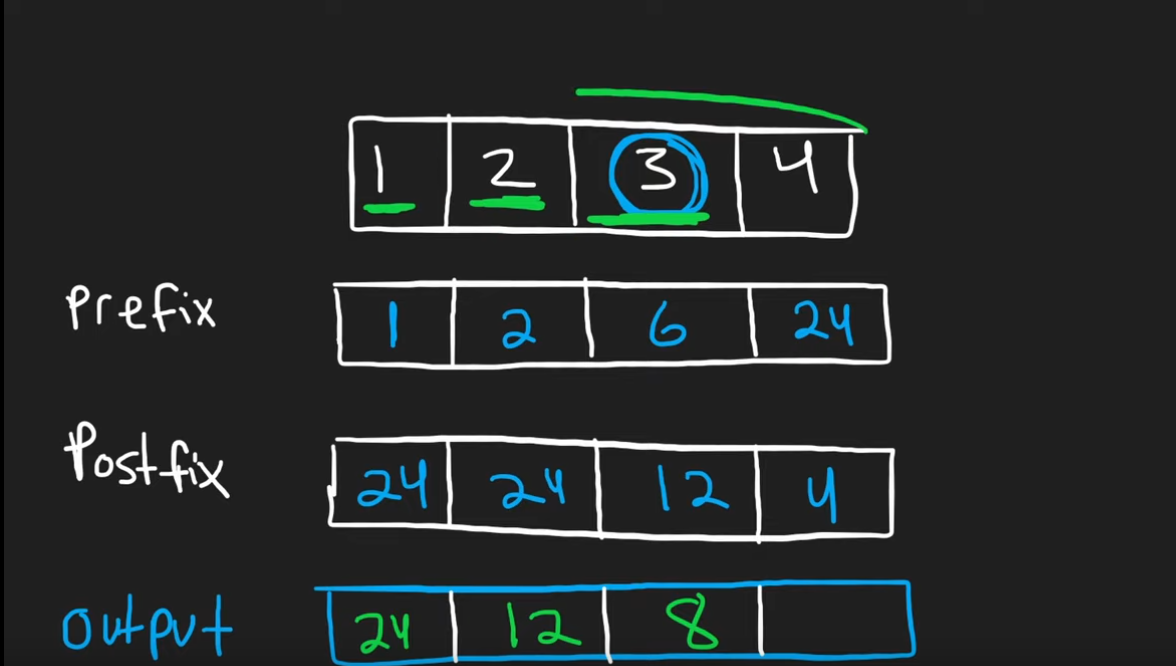 1 2 3 4
Prefix 1 2 6 24
Postfix 24 24 12 4
output 24 12 8